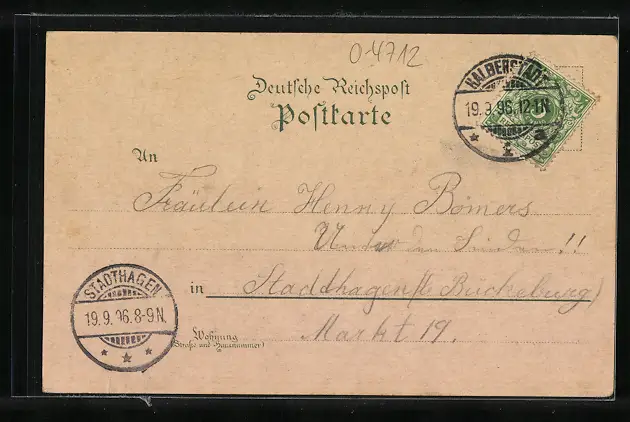 0-4712
Deutsche Reichspost
Postkarte
HALBERSTADT
19.9.96.12-1N.
1 a
An
Fräulein Henny Bömers
Unter den Linden!!
in Stadthagen (b Bückeburg)
Markt 19.
Wohnung
(Straße und Hausnummer)
STADTHAGEN
19.9.96.8-9N.